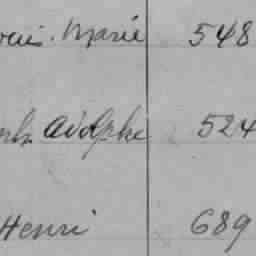 Marie 548
Adolphe 524
Henri 689